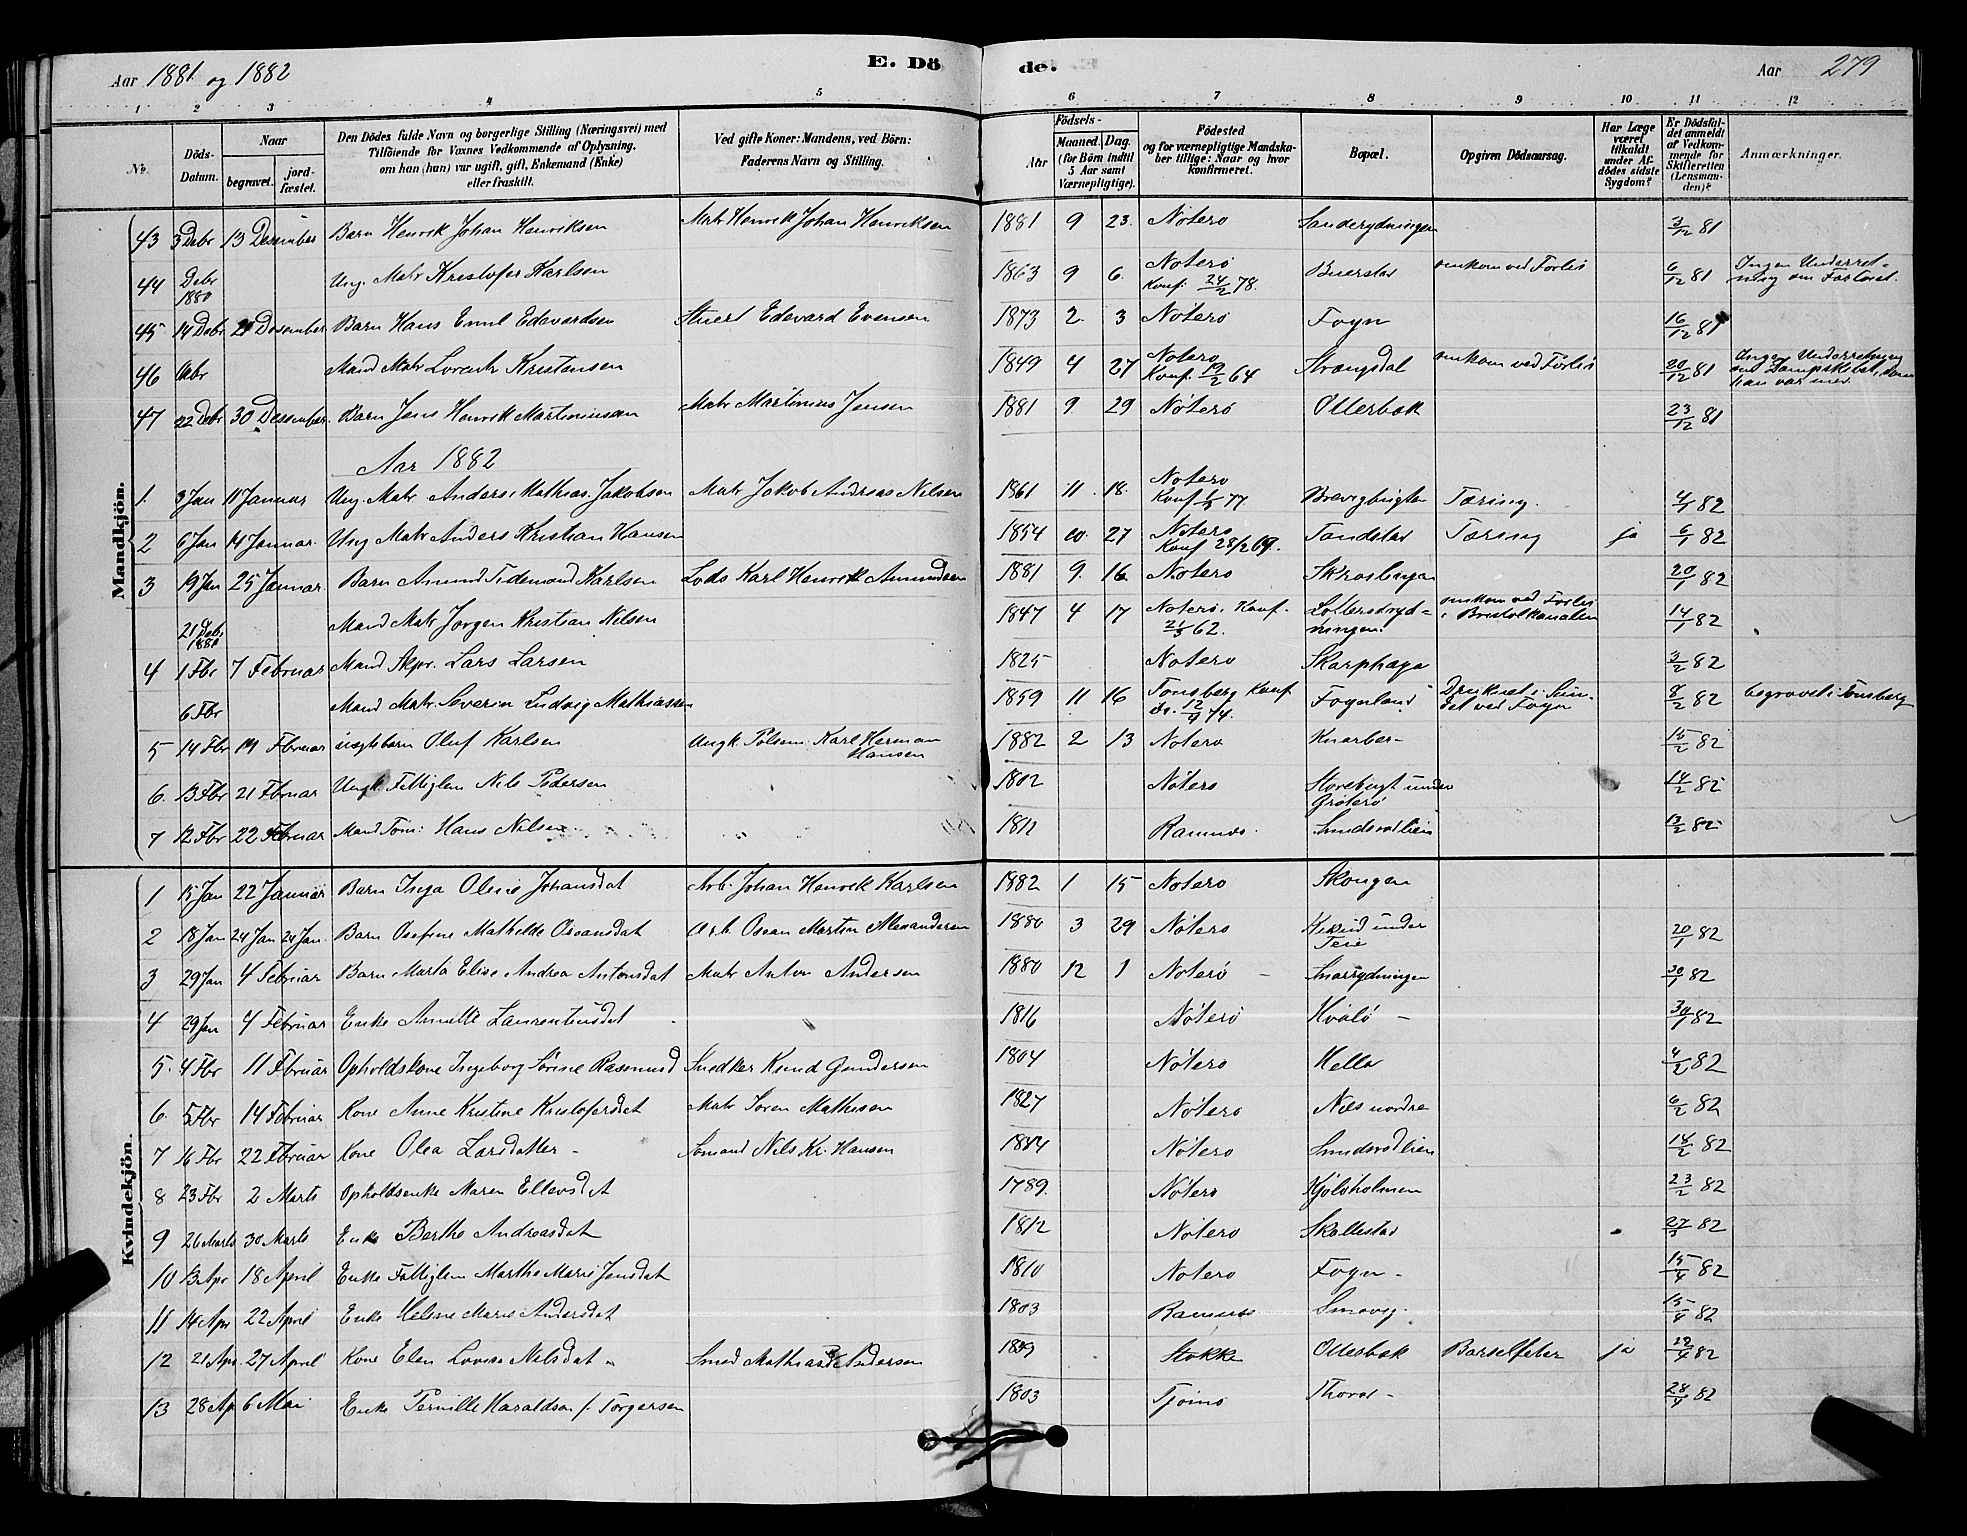 Aar 1881 og 1882
E. Dö
de.
Aar 279
1 2 3 4 5 6 7 8 9 10 11 12
No.
Döds-Datum.
Naar
begravet.
jord-fæstet.
Den Dödes fulde Navn og borgerlige Stilling (Næringsvei) med
Tilföiende for Voxnes Vedkommende af Oplysning,
om han (hun) var ugift, gift, Enkemand (Enke)
eller fraskilt.
Ved gifte Koner: Mandens, ved Börn:
Faderens Navn og Stilling.
Födsels-
Aar
Maaned. Dag.
(for Börn indtil
5 Aar samt
Værnepligtige).
Födested
og for værnepligtige Mandska-
ber tillige: Naar og hvor
konfirmeret.
Bopæl.
Opgiven Dödsaarsag.
Har Læge
været
tilkaldt
under Af-
dödes sidste
Sygdom?
Er Dödsfal-
det anmeldt
af Vedkom-
mende for
Skifteretten
(Lensman-
den)?
Anmærkninger.
Mandkjön.
43 3 Debr 13 Desember Barn Henrik Johan Henriksen Matr Henrik Johan Henriksen 1881 9 23. Nøterø Sanderydningen 3/12 81
44 Debr 1880 Ung. Matr Kristofer Karlsen 1863 9 6. Nøterø Konf. 24/2 78. Buerstad omkom ved Forlis 6/12 81 Ingen Underret-
ning om Fartøiet.
45 14 Debr 21 Desember Barn Hans Emil Edevardsen Stuert Edevard Evensen 1873 2 3 Nøterø Føyn 16/12 81
46 Mand Matr Lorentz Kristensen 1849 4 27 Nøterø Konf. 19/2 64 Strængsdal omkom ved Forlis 20/12 81 Ingen Underretning
om Dampskibet, som
han var med.
47 22 Debr 30 Dessember Barn Jens Henrik Martiniussen Matr Martinius Jensen 1881 9 29 Nøterø Ollerbak 23/12 81
Aar 1882
1. 3 Jan 11 Januar Ung. Matr Anders Mathias Jakobsen Matr Jakob Andreas Nilsen 1861 11 18. Nøterø Konf 1/5 77 Brevigbugten Tæring. 4/1 82
2 6 Jan 14 Januar. Ung Matr Anders Kristian Hansen 1854 10 27 Nøterø Konf 28/2 69. Tandstad Tæring ja 6/1 82
3 19 Jan 25 Januar. Barn Amund Tidemand Karlsen Lods Karl Henrik Amundsen 1881 9. 16 Nøterø 20/1 82
21 Debr 1881 Mand Matr Jørgen Kristian Nilsen 1847 4 17 Nøterø. Konf. 21/5 62. omkom ved Forlis
i Bristolkanalen 14/1 82
4 1 Fbr 7 Februar Mand Skpr. Lars Larsen 1825 Nøterø Skarphaga 3/2 82
6 Fbr Mand Matr. Severin Ludvig Mathiassen 1859 11 16 Tønsberg Konf. 12/4 74. Føynland Druknet i Sun-
det ved Føyn 8/2 82 begravet i Tønsberg
5 14 Fbr 19 Fbruar uægtebarn Oluf Karlsen Ungk. Karl Herman
Hansen 1882 2 13 Nøterø Knarber- 15/2 82
6. 13 Fbr 21 Fbruar Ungk. Fattiglem Nils Pedersen 1802 Nøterø Storebugt under
Grøterø 14/2 82
7 12 Fbr 22 Februar Mand Tøm: Hans Nilsen 1812 Ramnes. Smidsrødlien 13/2 82
Kvindekjön.
1 15 Jan 22 Januar Barn Inga Oline Johansdat Arb. Johan Henrik Karlsen 1882 1 15 Nøterø Skougen
2 18 Jan 24 Jan 24 Jan. Barn Osefine Mathilde Oscarsdat Arb. Oscar Martin Alexandersen 1880 3 29 Nøterø Kikud under
Teie 20/1 82
3 29 Jan 4 Februar Barn Marta Elise Andrea Antonsdat Matr Anton Andersen 1880 12 1 Nøterø Snarrydningen 30/1 82
4 29 Jan 4 Februar Enke Annette Laurentiusdat 1816 Nøterø Hvalø - 30/1 82
5. 4 Fbr 11 Fbruar Opholdskone Ingeborg Sørine Rasmusd Snedker Knud Gundersen 1804 Nøterø Hella 4/2 82
6. 5 Fbr 14 Februar Kone Anne Kristine Kristofersdat Matr Søren Mathisen 1827 Nøterø Næs nordre 6/2 82
7 16 Fbr 22 Fbruar Kone Olea Larsdatter - Sømand Nils Kr. Hansen 1844 Nøterø Smidsrødlien 18/2 82
8 23 Fbr 2 Marts Opholdsenke Maren Ellevsdat 1789. Nøterø Kjølsholmen 23/2 82
9 26 Marts 30 Marts Enke Berthe Andreasdat 1812 Nøterø Skallestad 27/3 82
10 13 Apr 18 April Enke Fattiglem Marthe Marie Jensdat 1810 Nøterø Føyn - 15/4 82
11 14 Apr 22 April Enke Helene Marie Andersdat 1803 Ramnes Smøvig. 15/4 82
12 21 Apr 27 April Kone Elen Lovise Nilsdat Smed Mathias Andersen Stokke Ollerbak Barselfeber ja 22/4 82
13 28 Ap 6 Mai Enke Pernille Haraldsen f. Torgersen 1803 Tjømø Thorød - 28/4 82